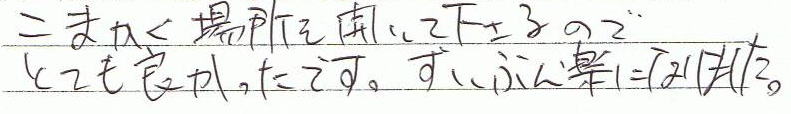 こまかく場所を聞いて下さるので
とても良かったです。ずいぶん楽になりました。